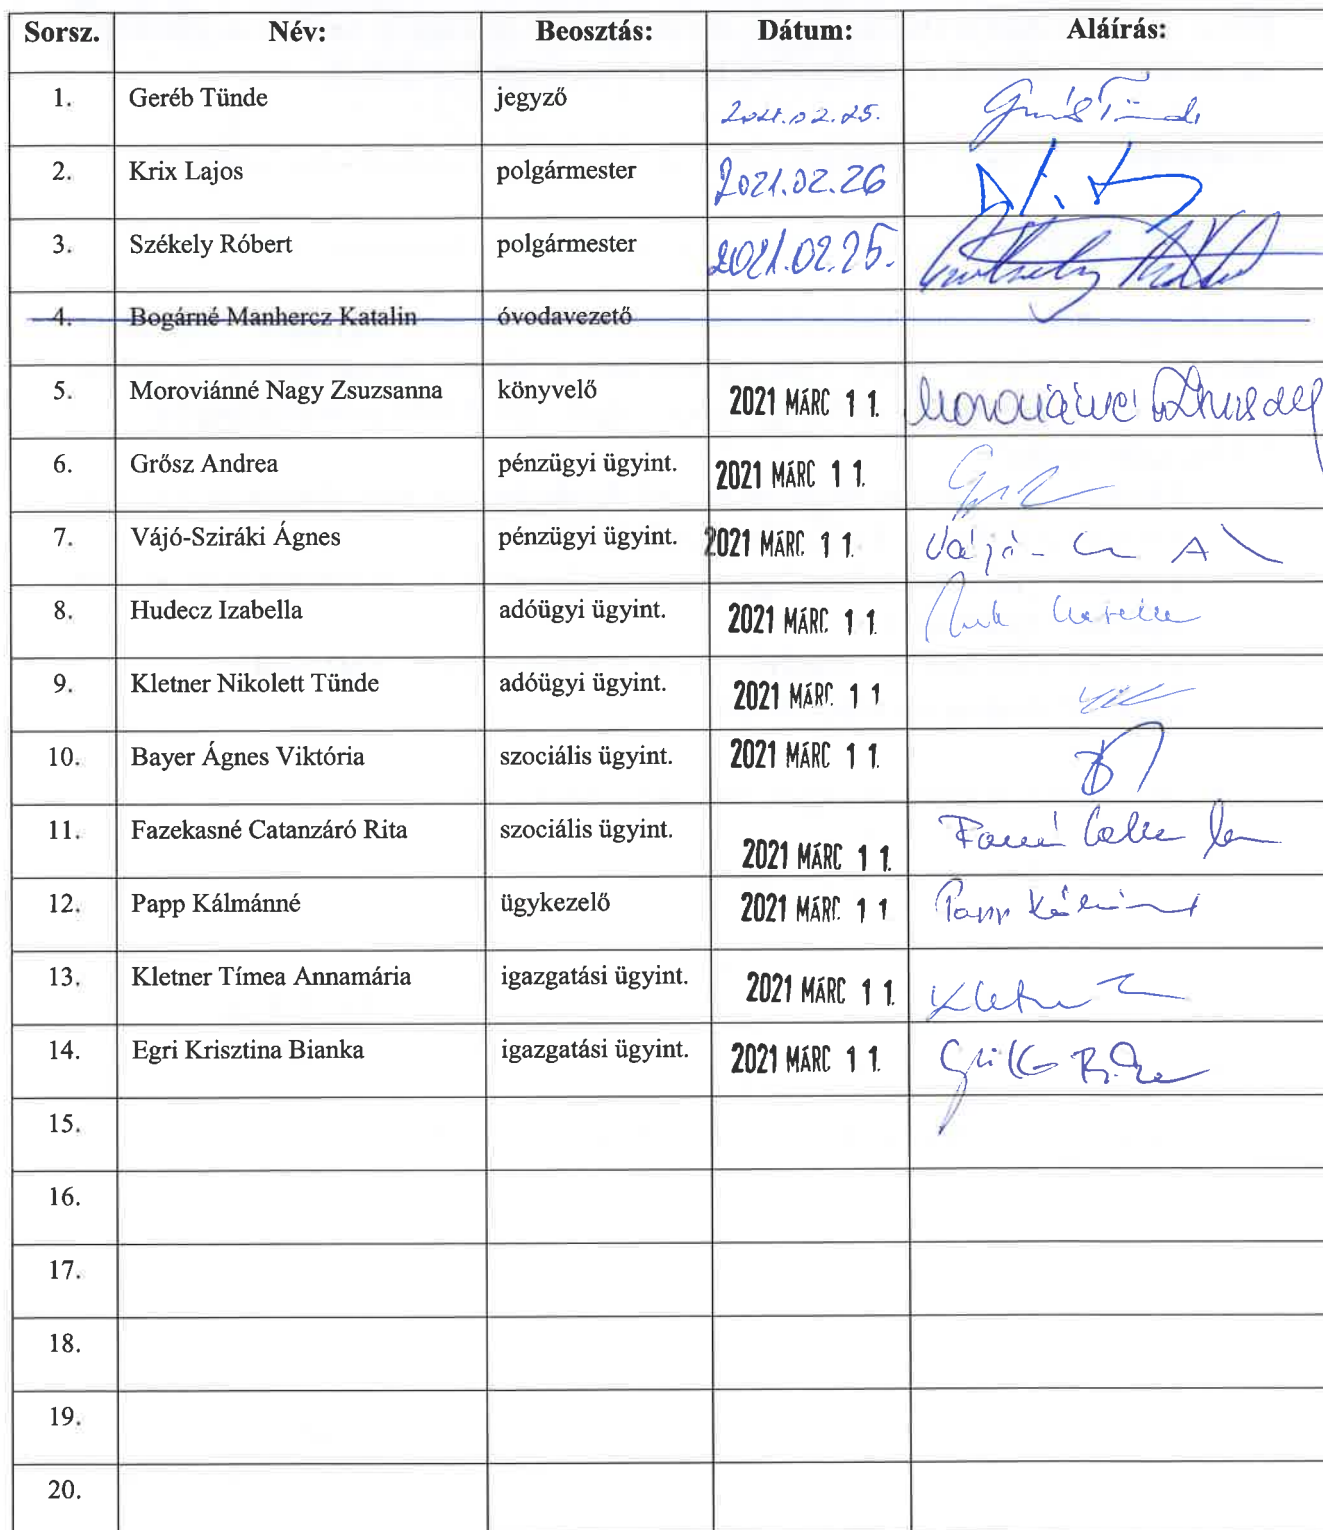 Sorsz. Név: Beosztás: Dátum: Aláírás:
1. Geréb Tünde jegyző 2021.02.25.
2. Krix Lajos polgármester 2021.02.26
3. Székely Róbert polgármester 2021.02.25.
4. Bogárné Manhercz Katalin óvodavezető
5. Moroviánné Nagy Zsuzsanna könyvelő 2021 MÁRC 1 1.
6. Grősz Andrea pénzügyi ügyint. 2021 MÁRC 1 1.
7. Vájó-Sziráki Ágnes pénzügyi ügyint. 2021 MÁRC. 1 1.
8. Hudecz Izabella adóügyi ügyint. 2021 MÁRC. 1 1.
9. Kletner Nikolett Tünde adóügyi ügyint. 2021 MÁRC. 1 1
10. Bayer Ágnes Viktória szociális ügyint. 2021 MÁRC 1 1.
11. Fazekasné Catanzáró Rita szociális ügyint. 2021 MÁRC 1 1.
12. Papp Kálmánné ügykezelő 2021 MÁRC. 1 1 Papp Kálmánné
13. Kletner Tímea Annamária igazgatási ügyint. 2021 MÁRC 1 1. Kletner
14. Egri Krisztina Bianka igazgatási ügyint. 2021 MÁRC 1 1.
15.
16.
17.
18.
19.
20.